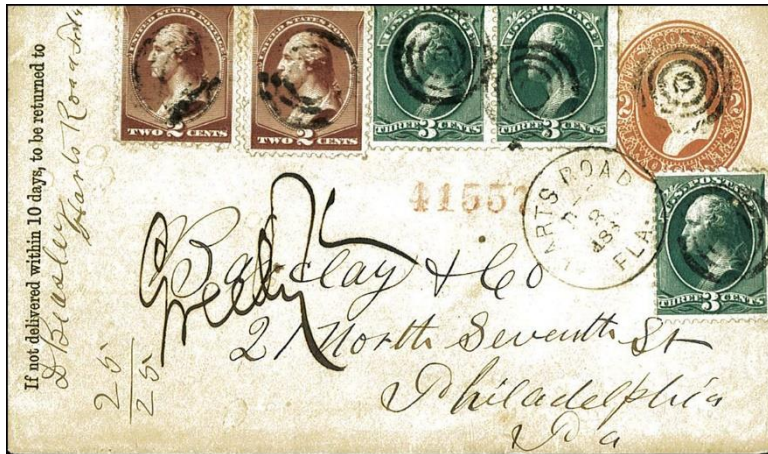 If not delivered within 10 days, to be returned to
D Beasley
Harts Road Fla
UNITED STATES POSTAGE
TWO 2 CENTS
UNITED STATES POSTAGE
TWO 2 CENTS
U.S. POSTAGE
THREE 3 CENTS
U.S. POSTAGE
THREE 3 CENTS
2
2
41557
HARTS ROAD
FLA.
U.S. POSTAGE
THREE 3 CENTS
Barclay & Co
21 North Seventh St
Philadelphia
Pa
25
25